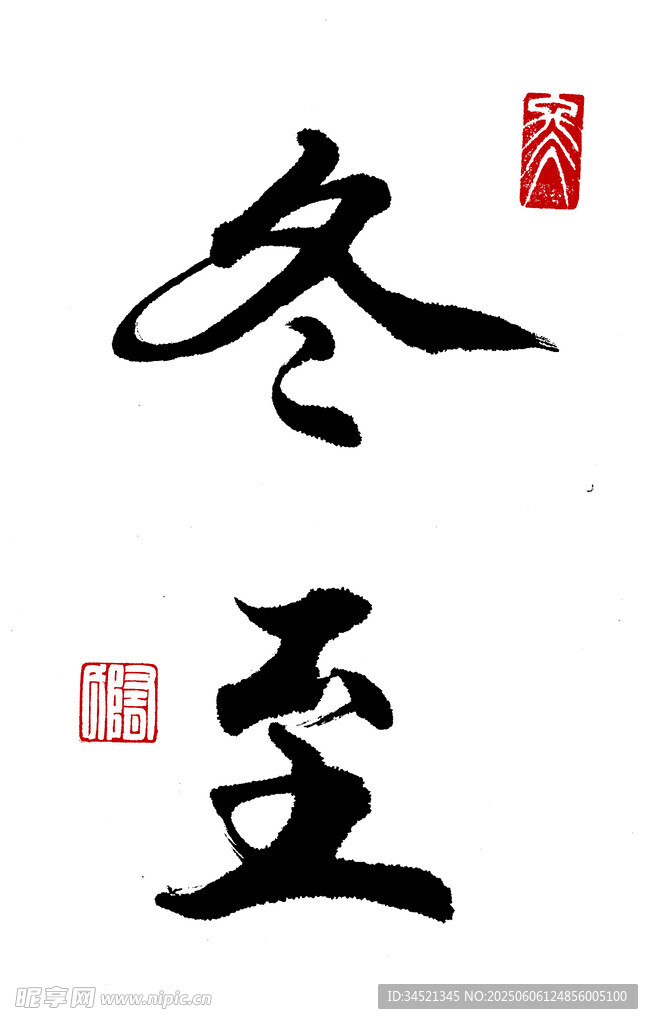 冬
至
昵享网 www.nipic.cn
ID:34521345 NO:20250606124856005100